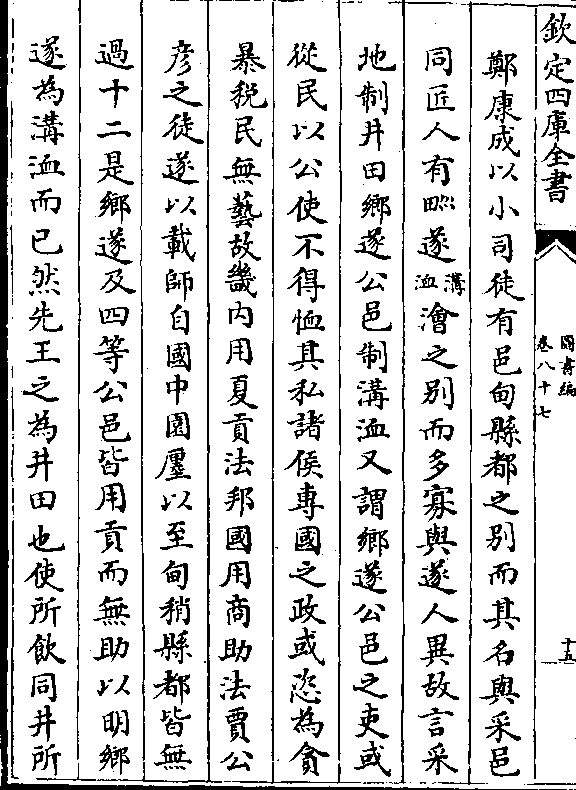 欽定四庫全書
圖書編
卷八十七
十五
鄭康成以小司徒有邑甸縣都之別而其名與采邑
同匠人有㽟遂溝洫澮之別而多寡與遂人異故言采
地制井田鄉遂公邑制溝洫又謂鄉遂公邑之吏或
從民以公使不得恤其私諸侯専國之政或恣為貪
暴税民無藝故畿内用夏貢法邦國用商助法賈公
彦之徒遂以載師自國中園㕓以至甸稍縣都皆無
過十二是鄉遂及四等公邑皆用貢而無助以明鄉
遂為溝洫而已然先王之為井田也使所飲同井所